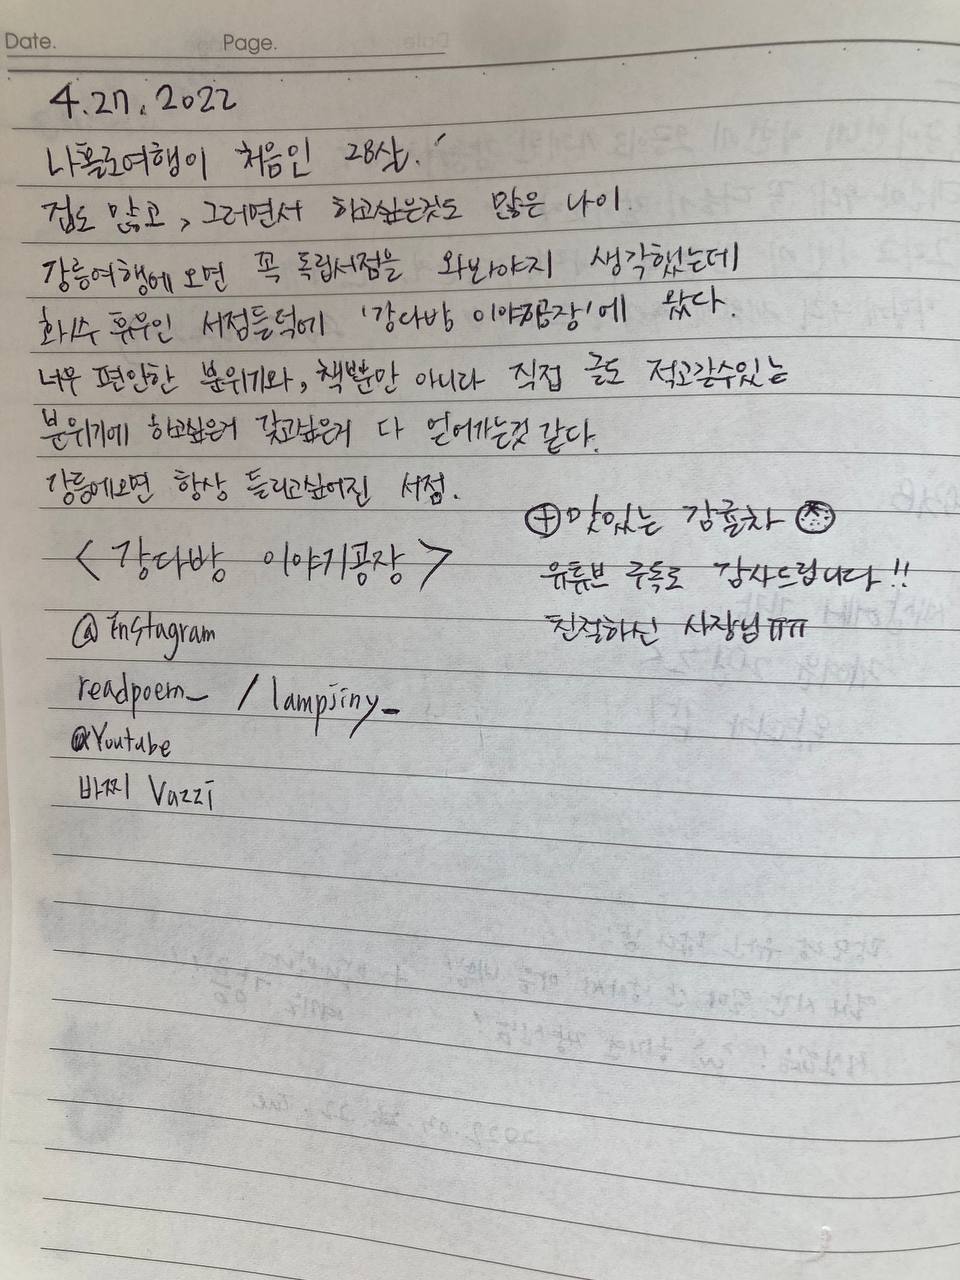 Date. Page.
4.27. 2022
나홀로여행이 처음인 28살.
겁도 많고, 그러면서 하고싶은것도 많은 나이.
강릉여행에 오면 꼭 독립서점을 와봐야지 생각했는데
화/수 휴무인 서점들덕에 '강다방 이야기공장'에 왔다.
너무 편안한 분위기와, 책뿐만 아니라 직접 글도 적고갈수있는
분위기에 하고싶은거 갖고싶은거 다 얻어가는것 같다.
강릉에오면 항상 들리고싶어진 서점.
⊕ 맛있는 감귤차
<강다방 이야기공장>
유튜브 구독도 감사드립니다!!
친절하신 사장님ㅠㅠ
@instagram
readpoem_ / lampjiny_
@Youtube
바찌 Vazzi